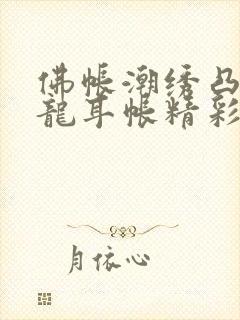 佛帳潮绣凸
龍耳帐精彩
月依心